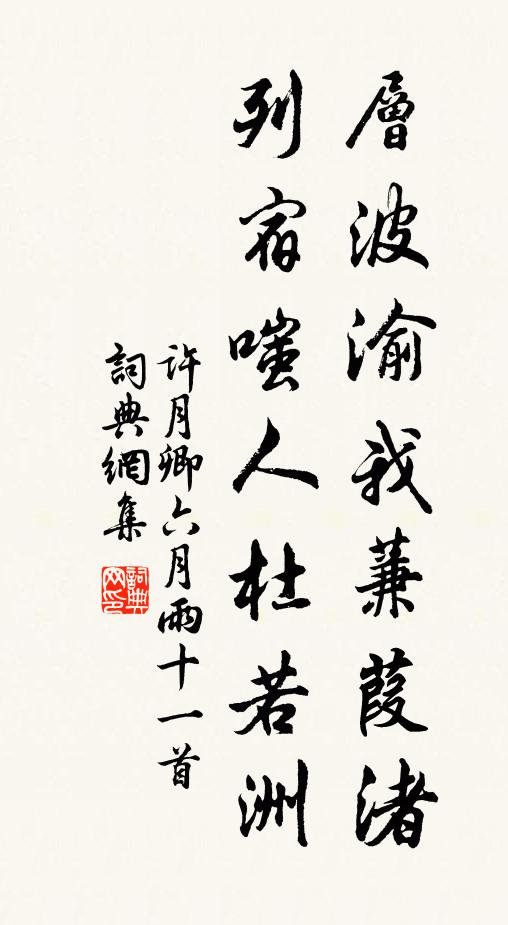 層波渝我蒹葭渚
列宿嗤人杜若洲
許月卿六月雨十一首
詞典網集
詞典網印